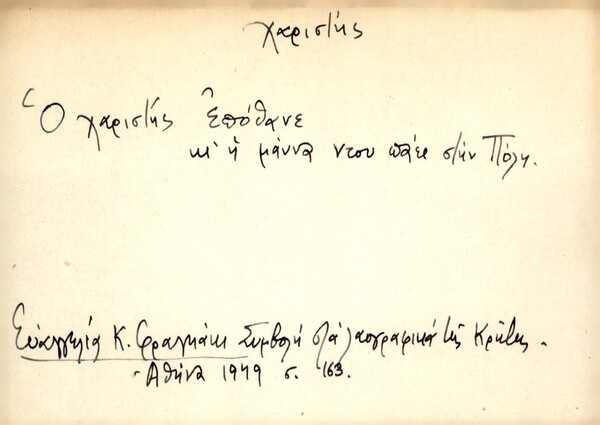 χαριστής
Ὁ χαριστής ἐπόθανε
κι' ἡ μάννα ντου πάει στήν Πόλη.
Εὐαγγελία Κ. Φραγκάκι Συμβολή στά λαογραφικά τῆς Κρήτης.
Ἀθήνα 1949 σ. 163.